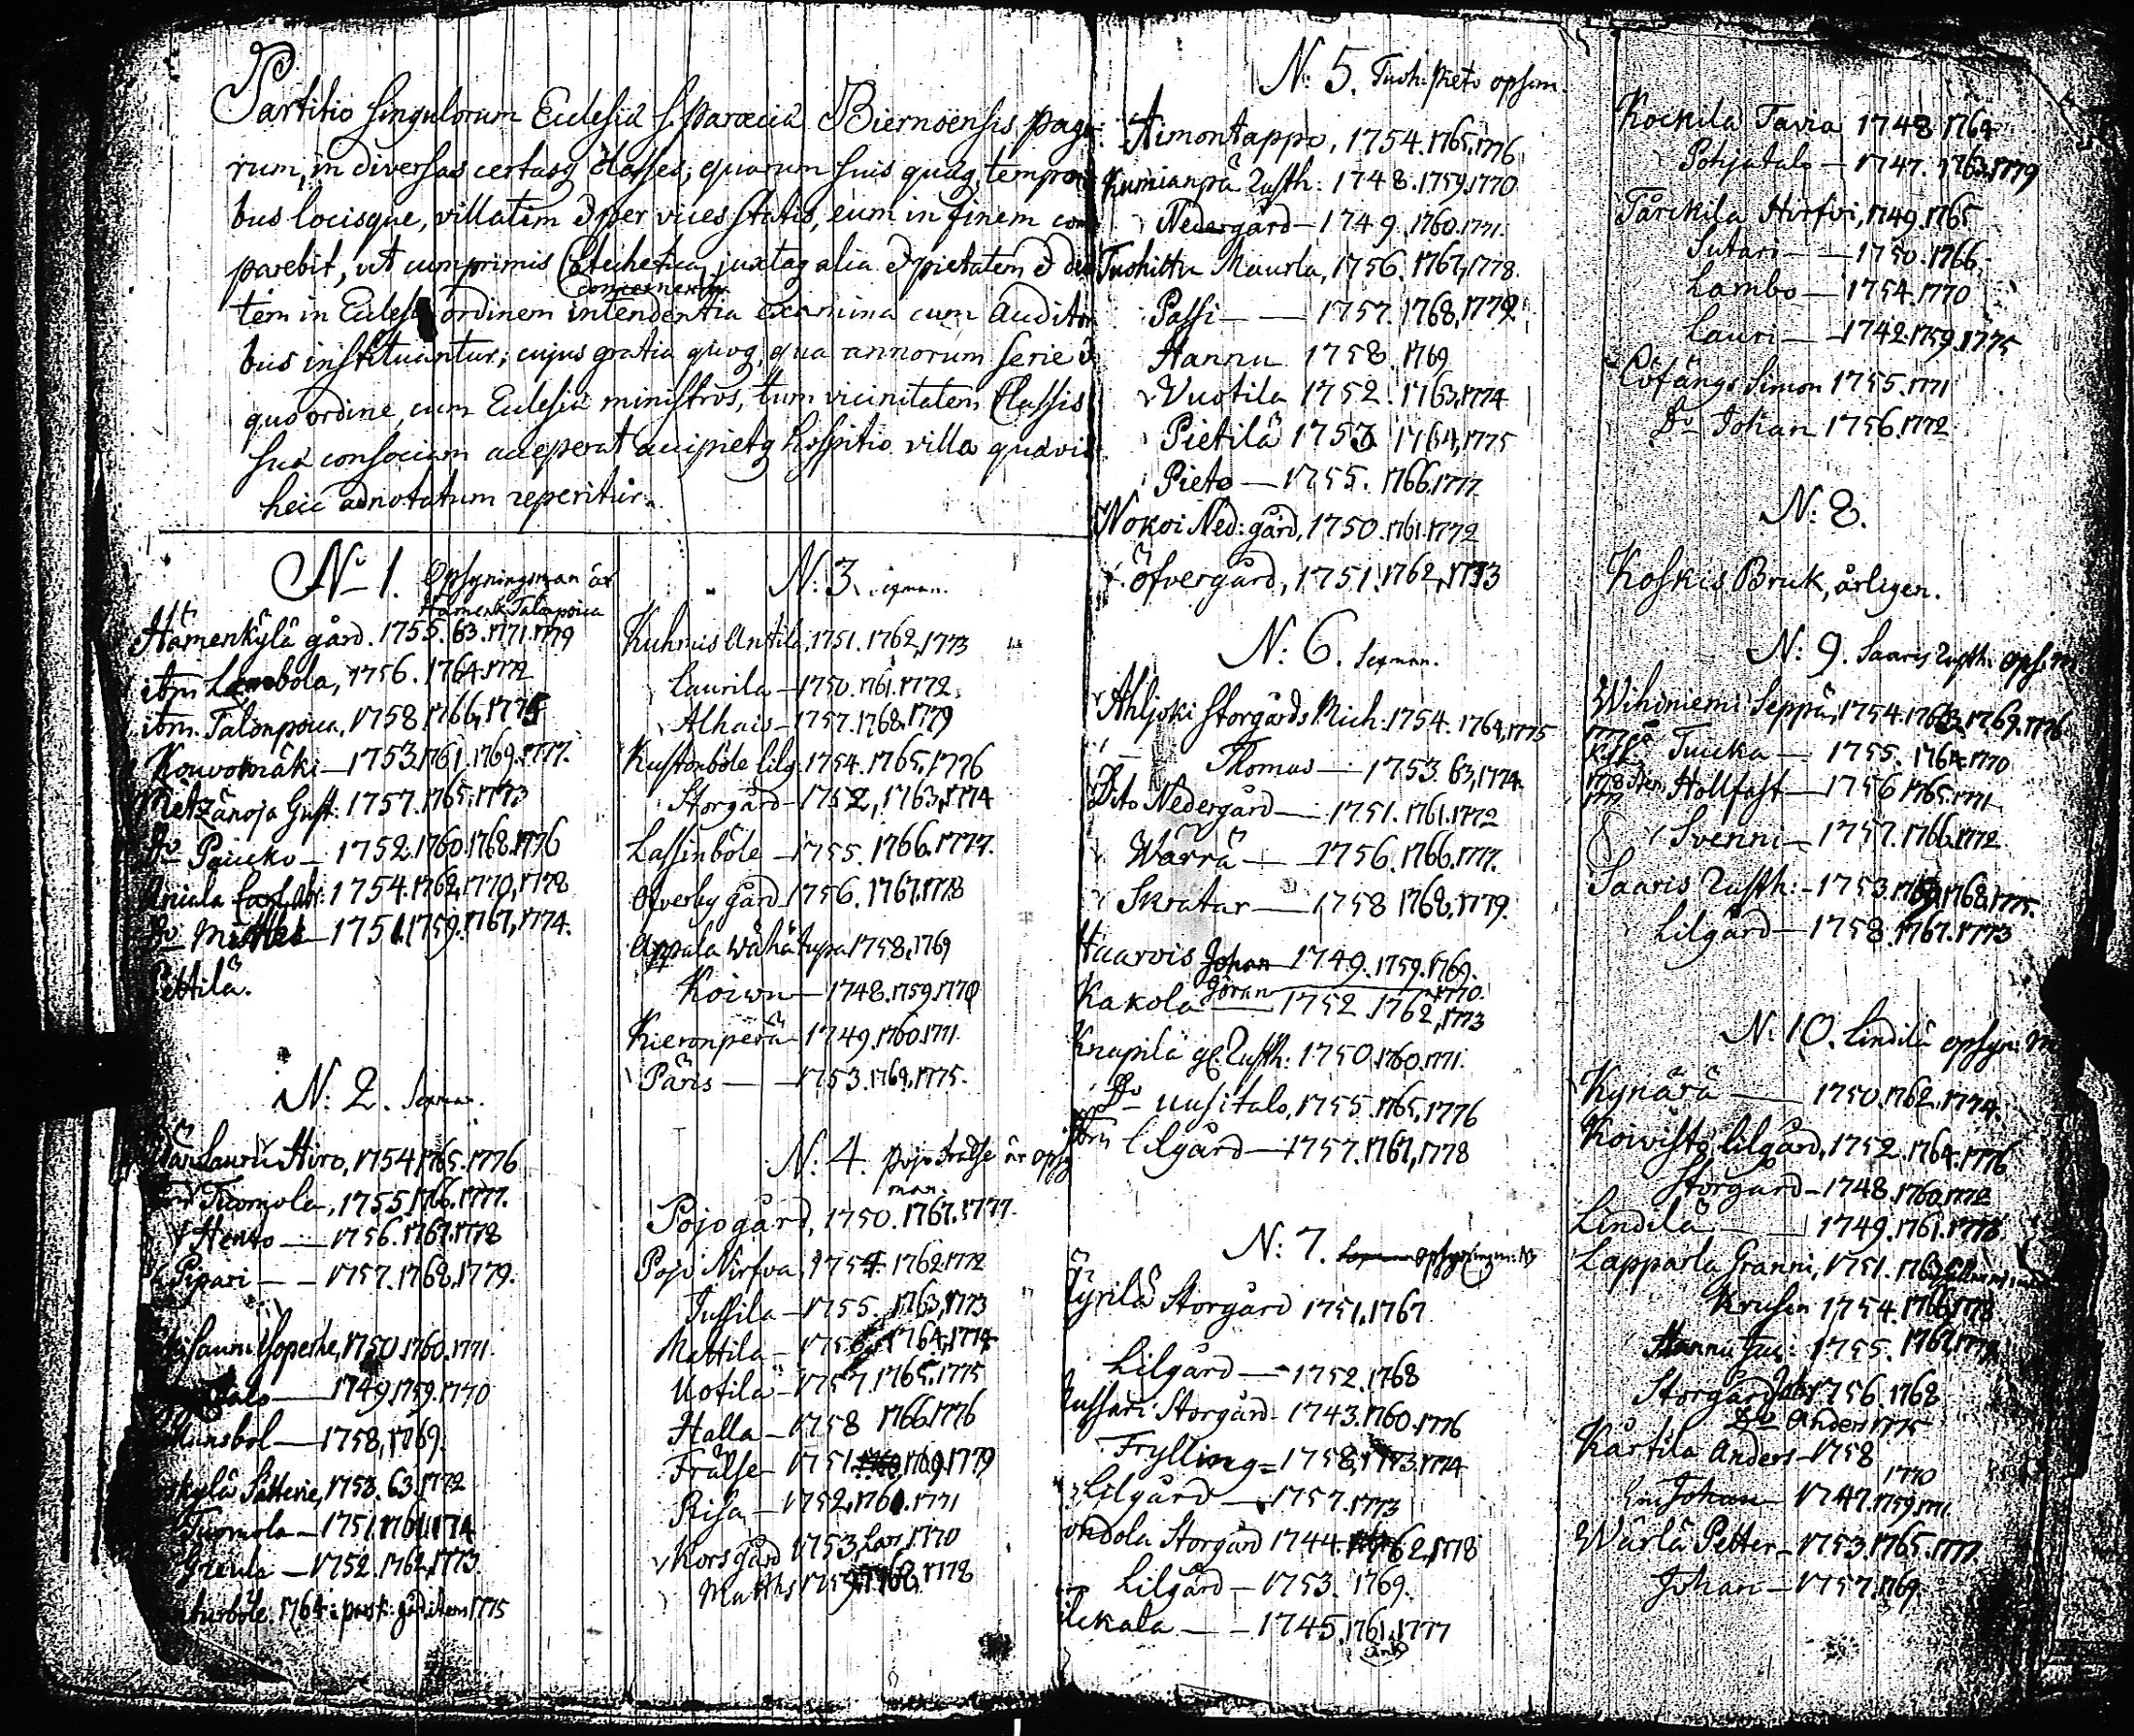 Partitio singulorum Eclesiæ s. paræciæ Biernoënsis pago:
rum, in diversas certasq classes, quarum suis quæq tempori
bus locisque, villatim & per vices statis, eum in finem com
parebit, ut cumprimis Catechetica, juxtaq alia & pietatem &
concernentia
tem in Eclesia ordinem intendentia examina cum Auditori
bus instituantur; cujus gratia quoq, qua annorum serie &
quo ordine, cum Eclesiæ ministros, tum vicinitatem Classis
suæ consociam acceperat accipietq hospitio villa quævis
heic adnotatum reperitur.
N 1. Opsyningsman är
Hämenk. Talonpoica
Hämenkylä gård. 1755. 63. 1771. 1779
ibm Lambola, 1756. 1764. 1772
ibm. Talonpoica, 1758. 1766, 1775
Kouvomäki — 1753. 1761. 1769. 1777.
Metzänoja Gust: 1757. 1765. 1773
Do Paucko — 1752. 1760. 1768. 1776
Aniala Carl Abr: 1754. 1762, 1770, 1778
Do Matthes — 1751. 1759. 1767, 1774.
Pettilä.
N: 2. Sexman.
Hiro, 1754. 1765. 1776
Tuomola, 1755. 1766. 1777.
Hento — 1756. 1767. 1778
Pipari — 1757. 1768. 1779.
1750. 1760. 1771.
1749. 1759. 1770
Munsbol — 1758, 1769.
Sätterie, 1753. 63. 1772
Tuomola — 1751. 1761. 1774
Greula — 1752. 1762. 1773.
1764 1775
N: 3. sexman.
Kuhmis Antila, 1751. 1762, 1773
Laurila — 1750. 1761. 1772.
Alhais — 1757. 1768. 1779
Kustonböle lilg. 1754. 1765. 1776
Storgård — 1752, 1763, 1774
Lassinböle — 1755. 1766. 1777.
Ofverby gård 1756. 1767. 1778
Appala Wähätupa 1758, 1769
Koiwu — 1748. 1759. 1770
Kieronperä 1749. 1760. 1771.
Päris — 1753. 1764, 1775.
N: 4. Pojo Frälse är opsy
man.
Pojo gård, 1750. 1767. 1777.
Pojo Nirfva, 1754. 1762. 1772
Jussila — 1755. 1763, 1773
Mattila — 1756. 1764, 1774
Uotila — 1757. 1765. 1775
Halla — 1758 1766. 1776
Frälse 1751. 1769. 1779
Risa — 1752, 1761. 1771
Korsgård 1753, Lars, 1770
Matths 1768. 1778
N: 5. Tuoh: Pieto opsm
Aimontappo, 1754. 1765. 1776
Kumianpä Rusth: 1748. 1759. 1770
Nedergård — 1749. 1760. 1771.
Tuohittu Maurla, 1756. 1767, 1778.
Passi — 1757. 1768, 1779
Hannu 1758. 1769
Wuotila 1752. 1763, 1774
Pietilä 1753 1764, 1775
Pieto — 1755. 1766. 1777.
Nokoi Ned: gård, 1750. 1761. 1772
öfvergård, 1751. 1762, 1773
N: 6. Sexman.
Ahljoki Storgårds Mich: 1754. 1764, 1775
Thomas — 1753. 63, 1774.
Dito Nedergård — 1751. 1761. 1772
Wärrä — 1756. 1766. 1777.
Skratar — 1758 1768, 1779.
Haarvis Johan 1749. 1759. 1769.
Göran 1770.
Kakola — 1752. 1762, 1773
Knapilä gl. Rusth: 1750. 1760. 1771.
Do uusitalo, 1755. 1765, 1776
ibm Lilgård — 1757. 1767, 1778
N: 7. opsyningsm.
Kyrilä Storgård 1751, 1767
Lilgård — 1752. 1768
Storgård 1743. 1760. 1776
Frylling = 1758, 1773. 1774
Lilgård — 1757. 1773
Storgård 1744. 1762. 1778
Lilgård — 1753. 1769.
1745. 1761. 1777
Kockila Tavia 1748 1764
Pohjatalo — 1747. 1763. 1779
Tårckila Hirfvi, 1749. 1765
Sutari — 1750. 1766.
Lambo — 1754. 1770
Lauri — 1742. 1759. 1775
Löfängs Simon 1755. 1771
Do Johan 1756. 1772
N: 8.
Koskis Bruk, årligen.
N: 9. Saaris Rusth: opsm
Wihiniemi Seppä, 1754. 1763. 1769. 1776
Tuicka — 1755. 1764. 1770
Hollfast — 1756 1765. 1771
Svenni — 1757. 1766. 1772
Saaris Rusth: — 1753. 1768. 1775.
Lilgård — 1758. 1767. 1773
N: 10. Lindilä opsyn: m
Kynärä — 1750. 1762. 1774.
Koivisto lilgård, 1752. 1764. 1776
Storgård — 1748. 1760. 1772
Lindilä — 1749. 1761. 1773
Lapparla Granni, 1751.
Krusen 1754. 1766. 1778
Hannu 1755. 1767, 1779
Storgård 1756. 1768
Do Anders 1775
Kärtila Anders — 1758
1770
Johan — 1747. 1759. 1771.
Wärlä Petter — 1753. 1765. 1777.
Johan — 1757. 1769.